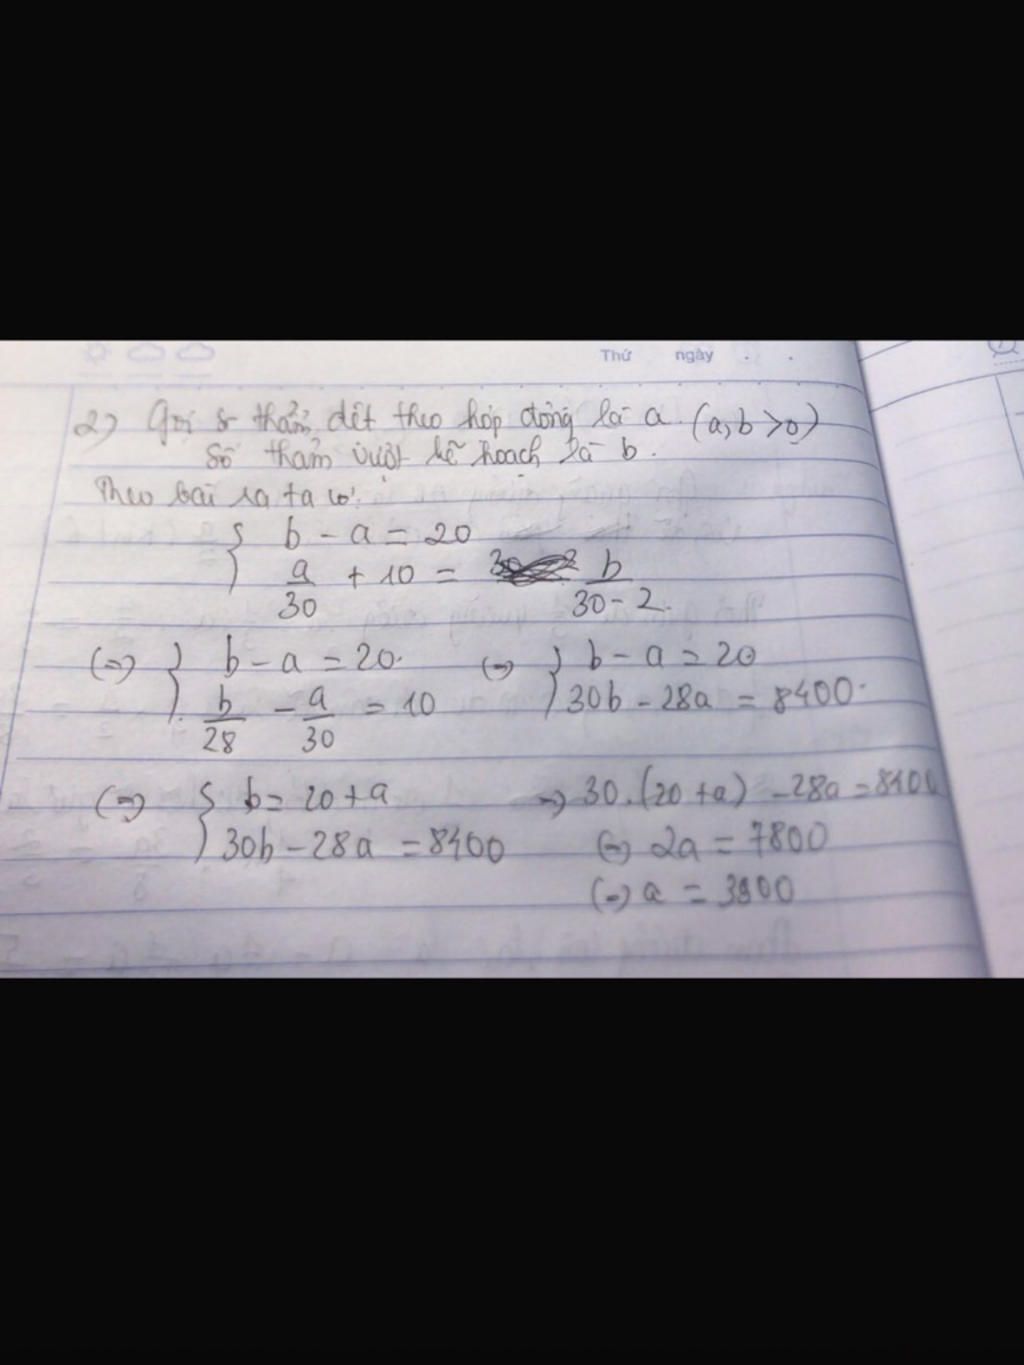 Thứ ngày . .
2) Gọi số thảm dệt theo hợp đồng là a. (a,b>0)
Số thảm vượt kế hoạch là b.
Theo bài ra ta có:
{ b - a = 20
a/30 + 10 = b/(30-2)
(=) { b - a = 20. (=) { b - a = 20
b/28 - a/30 = 10 30b - 28a = 8400.
(=) { b = 20+a => 30.(20+a) - 28a = 8400
30b - 28a = 8400 (=) 2a = 7800
(=) a = 3900